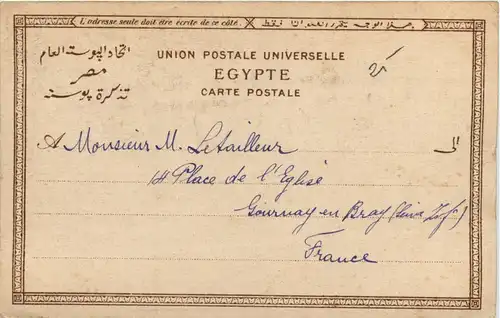 L'adresse seule doit être écrite de ce côté.
اتحاد البوستة العام
مصر
تذكرة بوسته
UNION POSTALE UNIVERSELLE
EGYPTE
CARTE POSTALE
الى
A Monsieur M. Letailleur
14 Place de l'Eglise
Gournay en Bray (Seine Infre)
France